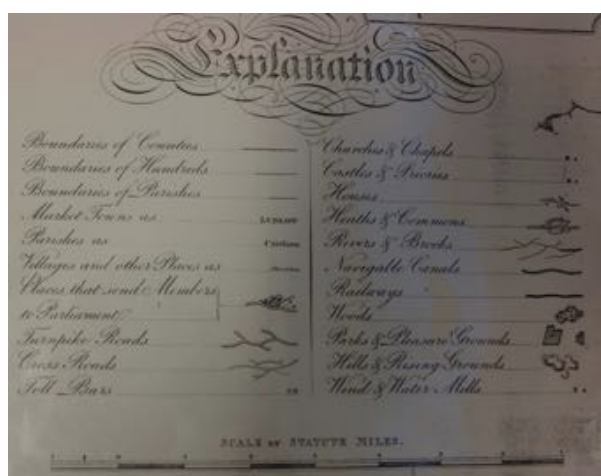 Explanation
Boundaries of Counties
Boundaries of Hundreds
Boundaries of Parishes
Market Towns as
Parishes as
Villages and other Places as
Places that send Members
to Parliament
Turnpike Roads
Cross Roads
Toll Bars
Churches & Chapels
Castles & Priories
Houses
Heaths & Commons
Rivers & Brooks
Navigable Canals
Railways
Woods
Parks & Pleasure Grounds
Hills & Rising Grounds
Wind & Water Mills
SCALE OF STATUTE MILES.